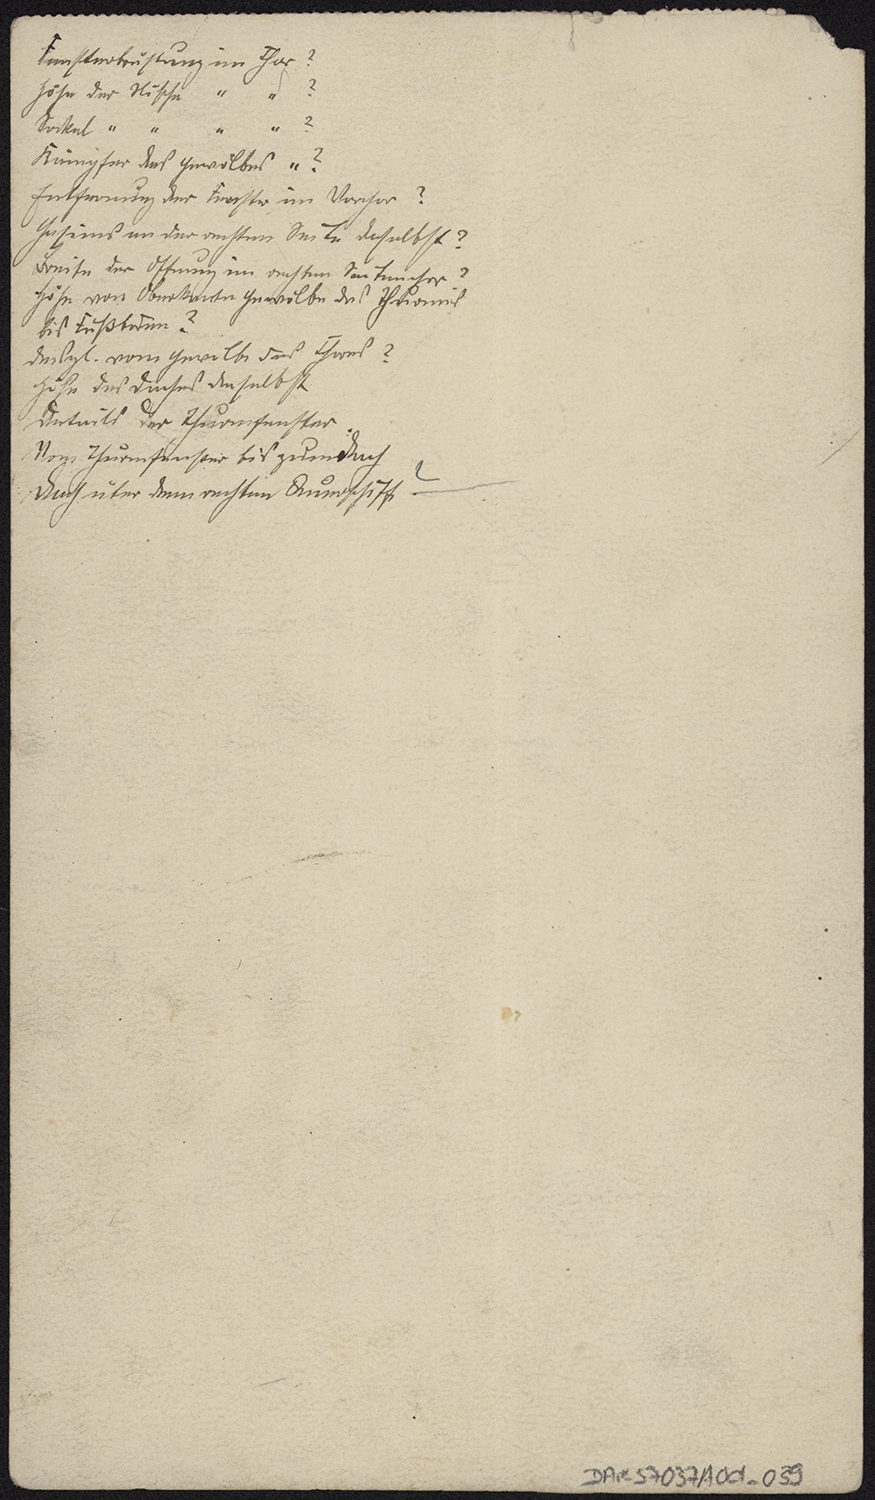 Fensterbrüstung im Chor ?
Höhe der Nische " " ?
Sockel " " " " ?
Kämpfer des Gewölbes " ?
Entfernung der Fenster im Vorchor ?
Gesims an der rechten Seite daselbst ?
Breite der Öffnung im rechten Seitenchor ?
Höhe von Oberkante Gewölbe des Thurmes
bis Fußboden ?
desgl. vom Gewölbe des Chores ?
Höhe des Daches daselbst
Details der Thurmfenster
Vom Thurmfenster bis zum Dach
Dach über dem rechten Querschiff ?
DAR-S7037/A00-039